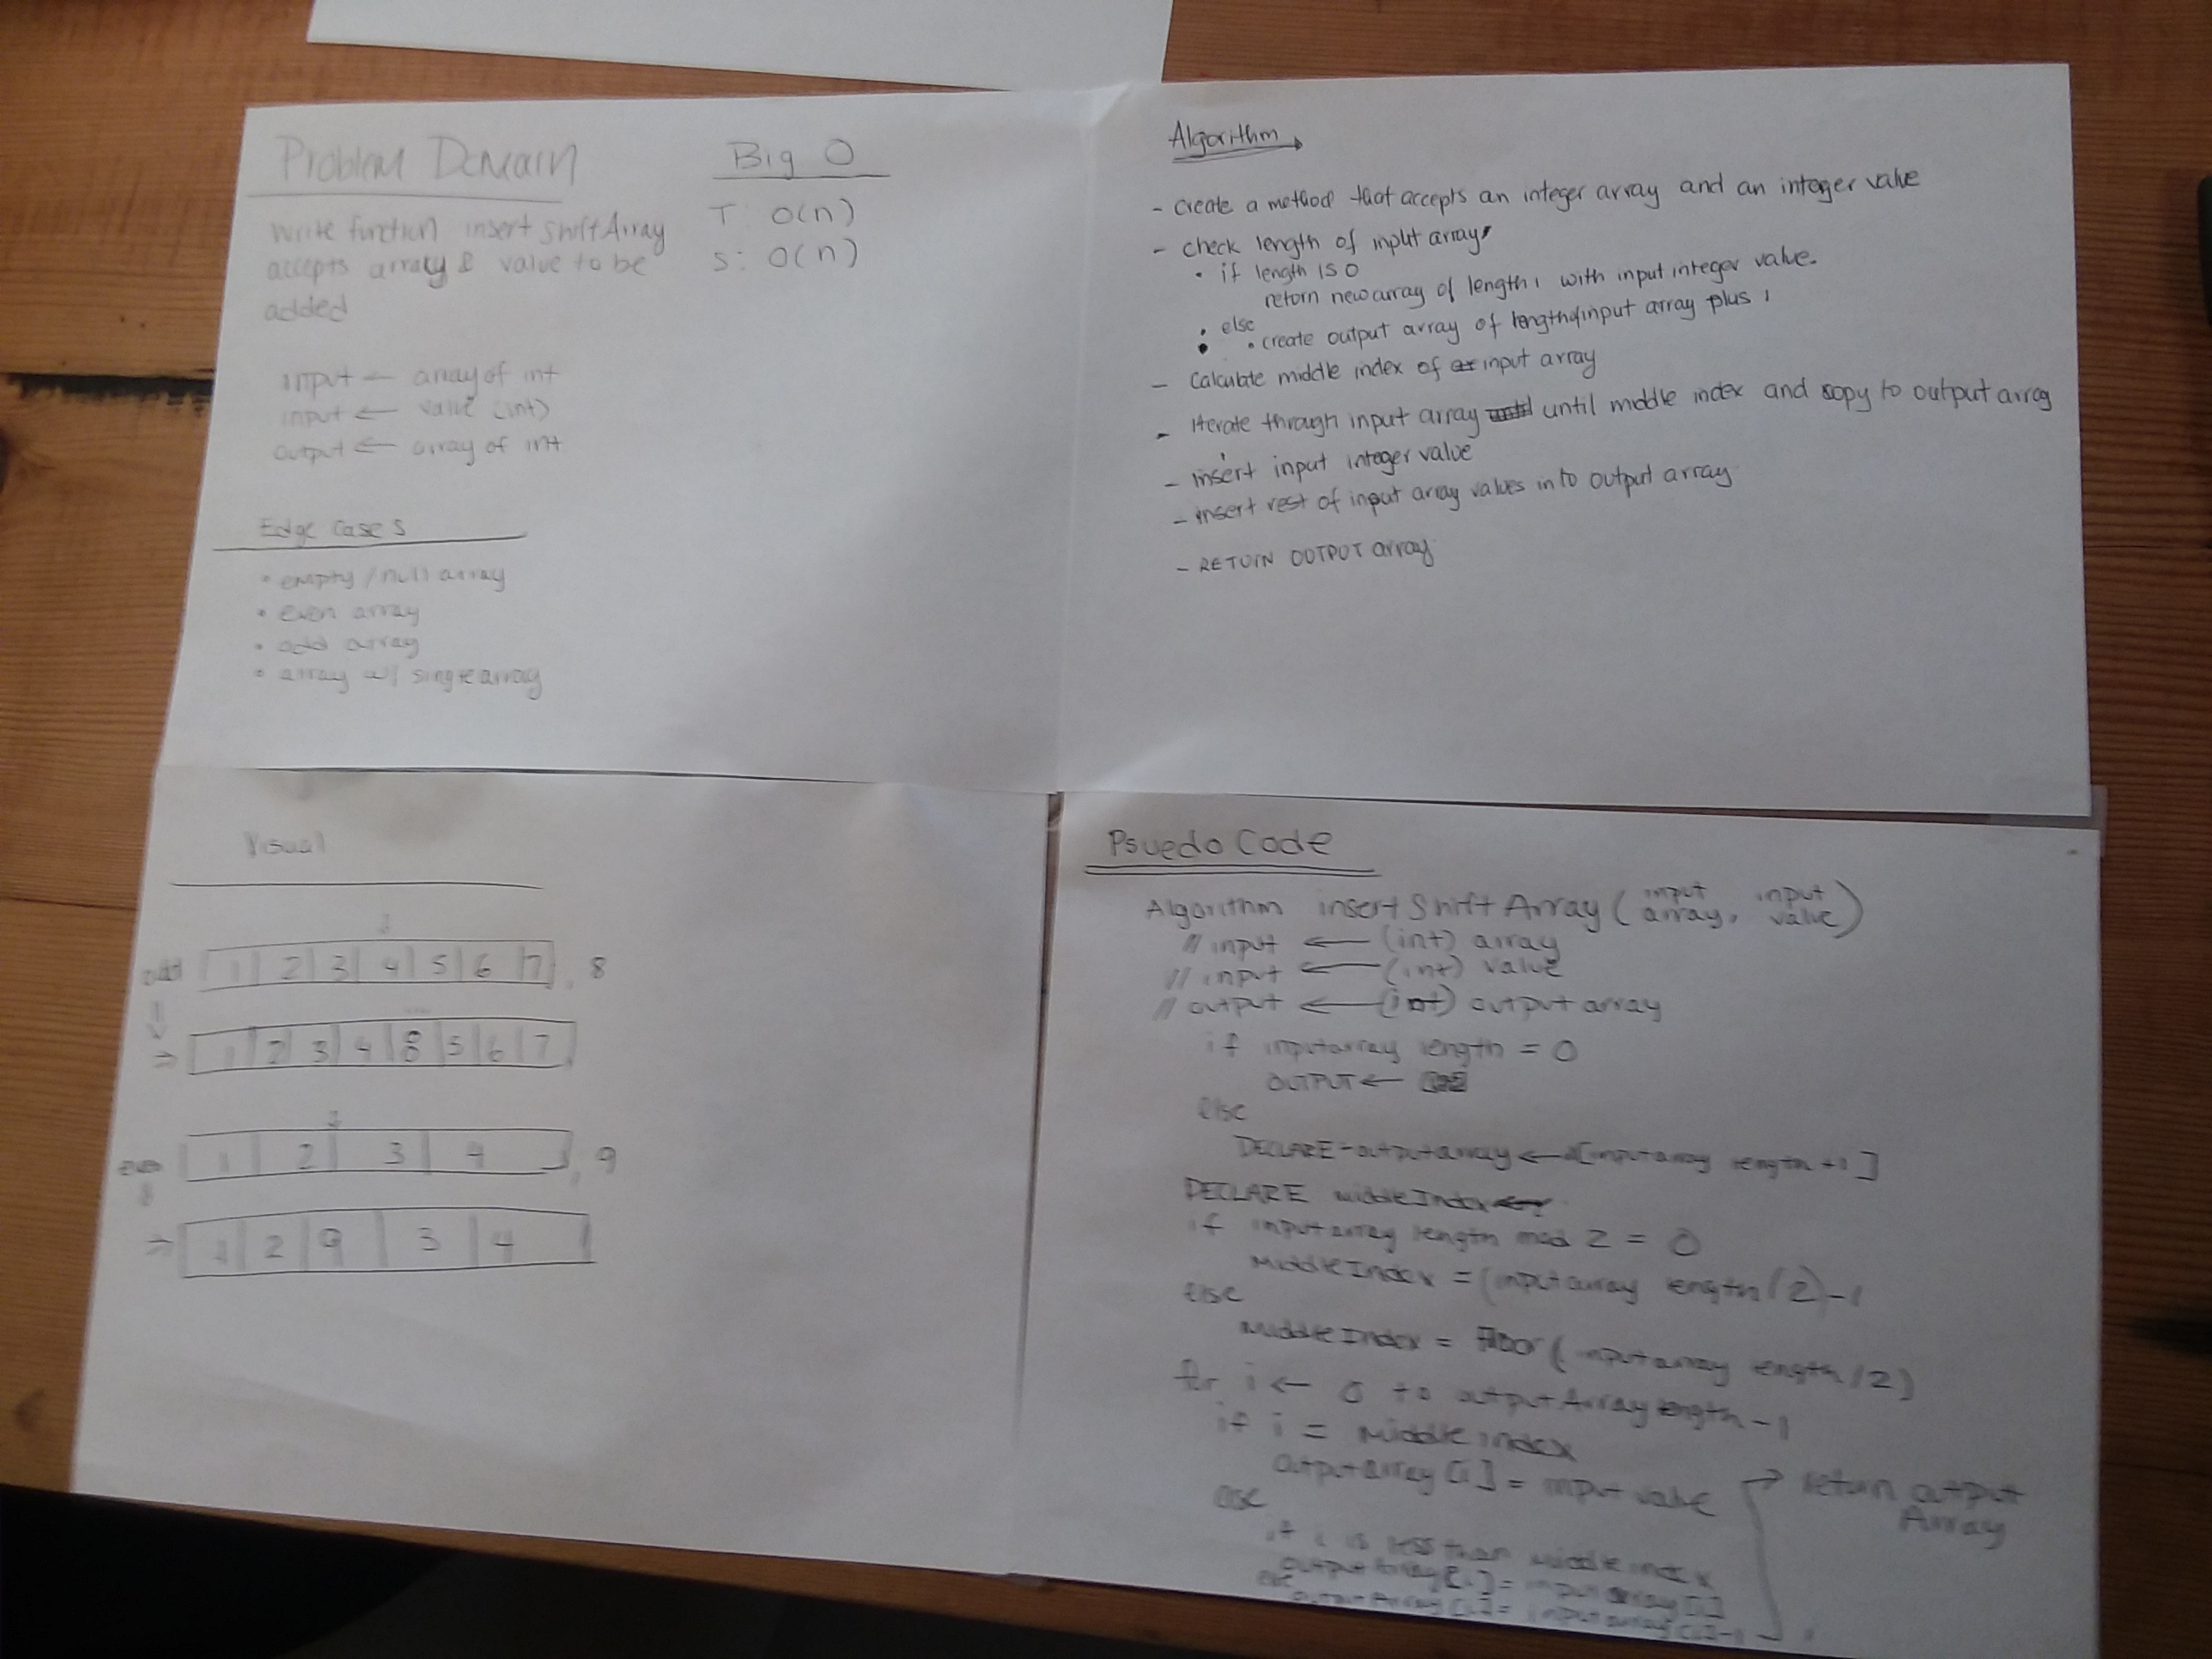 Problem Domain
write function insertShiftArray
accepts array & value to be
added
input ← array of int
input ← value (int)
output ← array of int
Big O
T: O(n)
S: O(n)
Edge Cases
• empty/null array
• even array
• odd array
• array w/ single array
Visual
odd | 1 | 2 | 3 | 4 | 5 | 6 | 7 | , 8
⇒ | 1 | 2 | 3 | 4 | 8 | 5 | 6 | 7 |
even | 1 | 2 | 3 | 4 | , 9
⇒ | 1 | 2 | 9 | 3 | 4 |
Algorithm →
- create a method that accepts an integer array and an integer value
- check length of input array
• if length is 0
return new array of length 1 with input integer value.
• else
• create output array of length of input array plus 1
- calculate middle index of input array
- iterate through input array until middle index and copy to output array
- insert input integer value
- insert rest of input array values into output array
- RETURN OUTPUT array
Psuedo Code
Algorithm insertShiftArray (input array, input value)
// input ← (int) array
// input ← (int) value
// output ← (int) output array
if inputarray length = 0
OUTPUT ←
else
DECLARE outputarray ← [inputarray length +1]
DECLARE middleIndex ←
if inputarray length mod 2 = 0
middleIndex = (inputarray length/2)-1
else
middleIndex = Floor(inputarray length/2)
for i ← 0 to outputArray length -1
if i = middle index
outputarray[i] = input value
else
if i is less than middle index
outputArray[i] = inputarray[i]
else
outputArray[i] = inputarray[i-1]
return output
Array